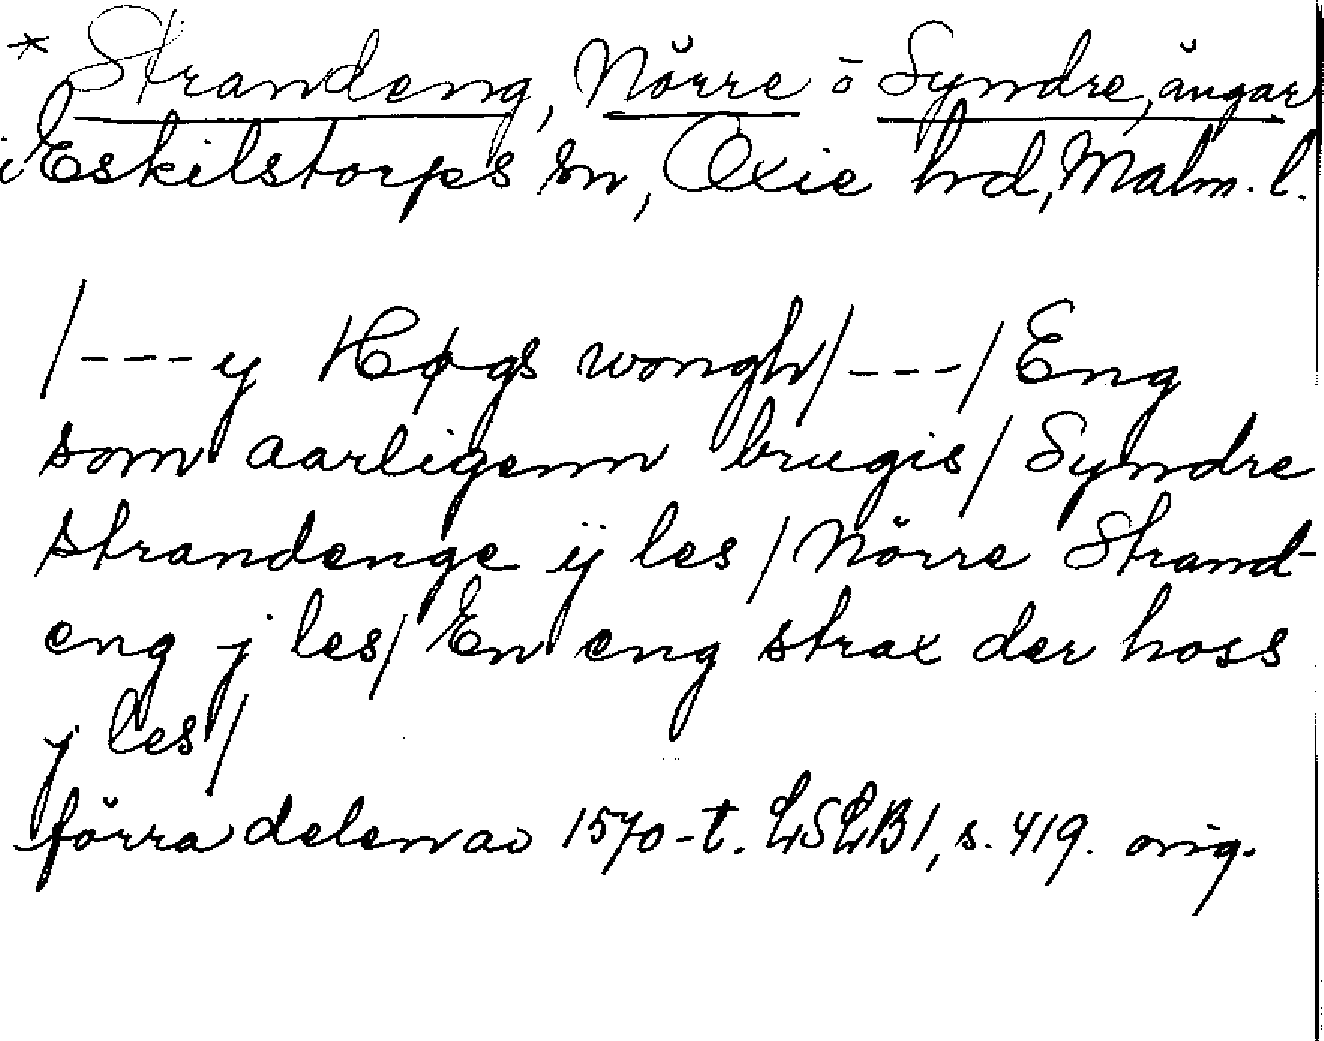 * Strandeng, Nörre o Syndre, ängar
i Eskilstorps sn, Oxie hrd, Malm. l.
/--- y Høgs wongh/---/ Eng
som aarligenn brugis/ Syndre
strandenge ij les / Nörre Strand-
eng j les/ En eng strax der hoss
j les/
förra delen av 1570-t. LSLB 1, s. 419. orig.